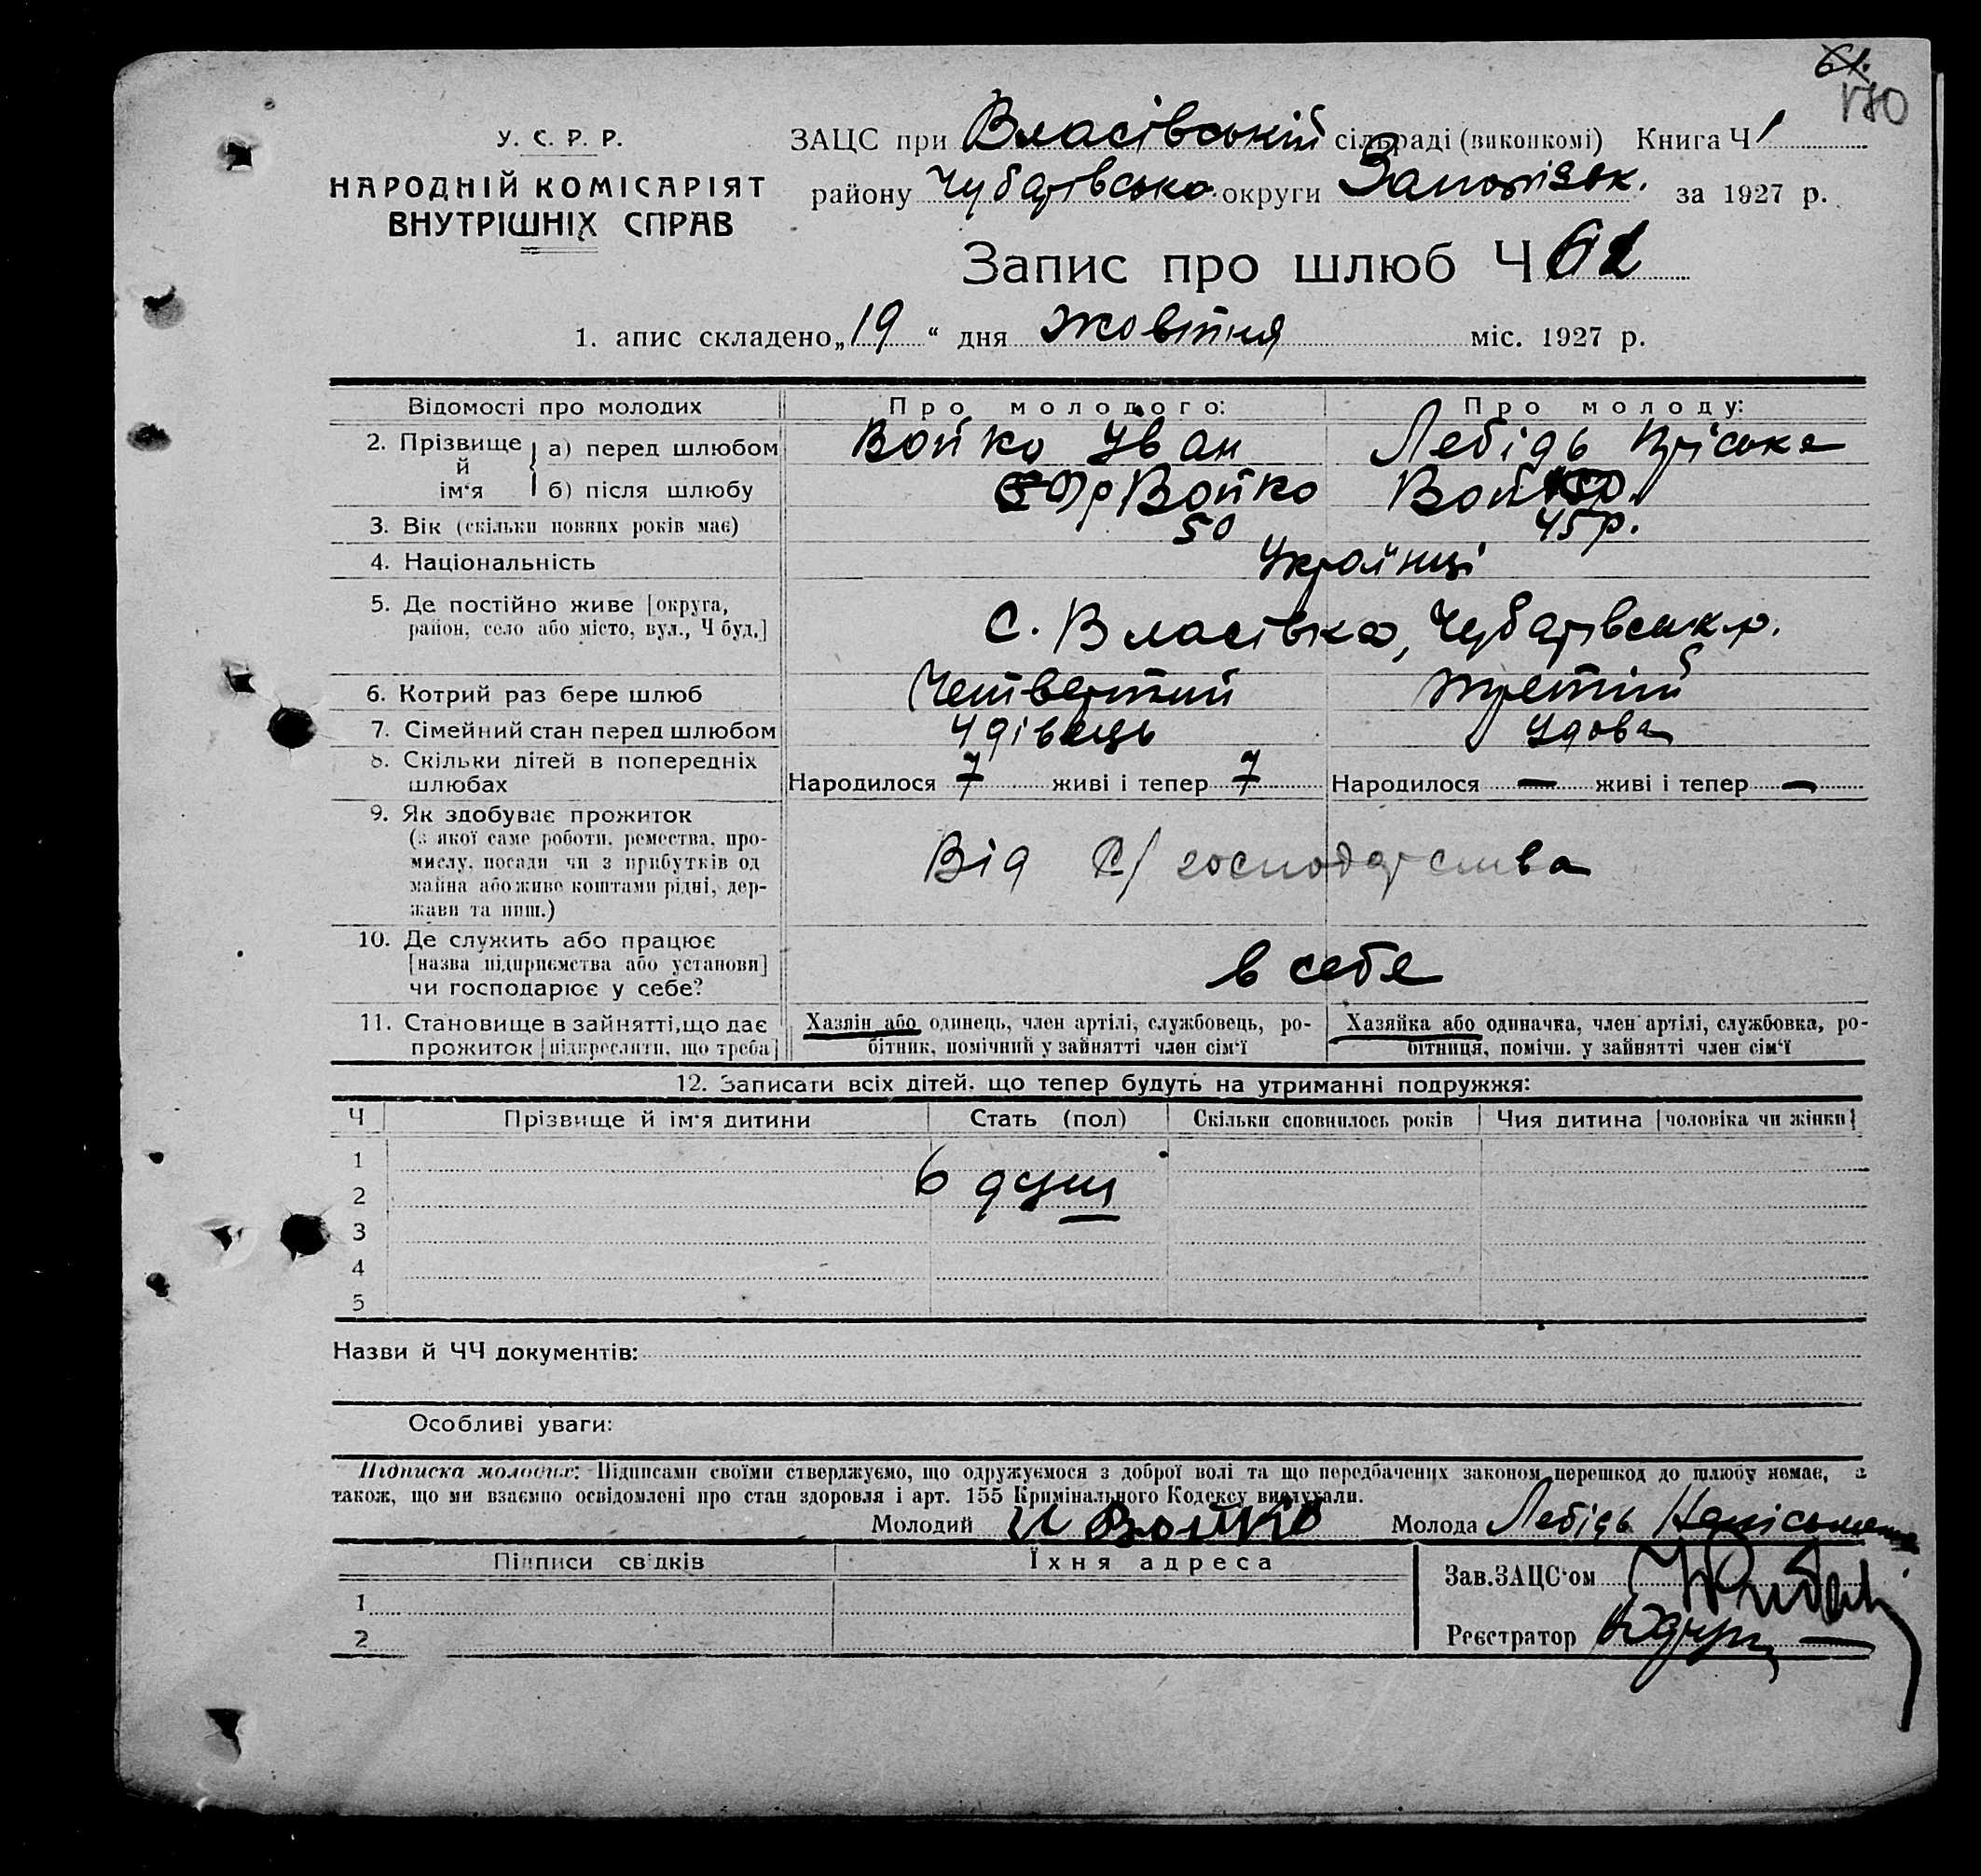 61.
170
У. С. Р. Р.
НАРОДНІЙ КОМІСАРІЯТ
ВНУТРІШНІХ СПРАВ
ЗАЦС при Власівській сільраді (виконкомі) Книга Ч 1
району Чубарівсько. округи Запорізьк. за 1927 р.
Запис про шлюб Ч 62
1. апис складено „19“ дня жовтня міс. 1927 р.
Відомості про молодих Про молодого: Про молоду:
2. Прізвище й ім‘я
а) перед шлюбом Бойко Іван Лебідь
б) після шлюбу Бойко Бойко
3. Вік (скільки повних років має) 50 45 р.
4. Національність Українці
5. Де постійно живе [округа,
район, село або місто, вул., Ч буд.] С. Власівка, Чубарівськ. р.
6. Котрий раз бере шлюб Четвертий третій
7. Сімейний стан перед шлюбом Удівець Удова
8. Скільки дітей в попередніх
шлюбах Народилося 7 живі і тепер 7 Народилося — живі і тепер —
9. Як здобуває прожиток
(з якої саме роботи, ремества, про-
мислу, посади чи з прибутків од
майна або живе коштами рідні, дер-
жави та инш.)
Від с/господарства
10. Де служить або працює
[назва підприємства або установи]
чи господарює у себе?
в себе
11. Становище в зайнятті, що дає
прожиток [підкреслити, що треба]
Хазяїн або одинець, член артілі, службовець, ро-
бітник, помічний у зайнятті член сім‘ї
Хазяйка або одиначка, член артілі, службовка, ро-
бітниця, помічн. у зайнятті член сім‘ї
12. Записати всіх дітей, що тепер будуть на утриманні подружжя:
Ч Прізвище й ім‘я дитини Стать (пол) Скільки сповнилось років Чия дитина [чоловіка чи жінки]
1
6 душ
2
3
4
5
Назви й ЧЧ документів:
Особливі уваги:
Підписка молодих: Підписами своїми стверджуємо, що одружуємося з доброї волі та що передбачених законом перешкод до шлюбу немає, а
також, що ми взаємно освідомлені про стан здоровля і арт. 155 Кримінального Кодексу вислухали.
Молодий И Бойко Молода Лебідь
Підписи свідків Їхня адреса
Зав. ЗАЦС‘ом
1
Реєстратор
2